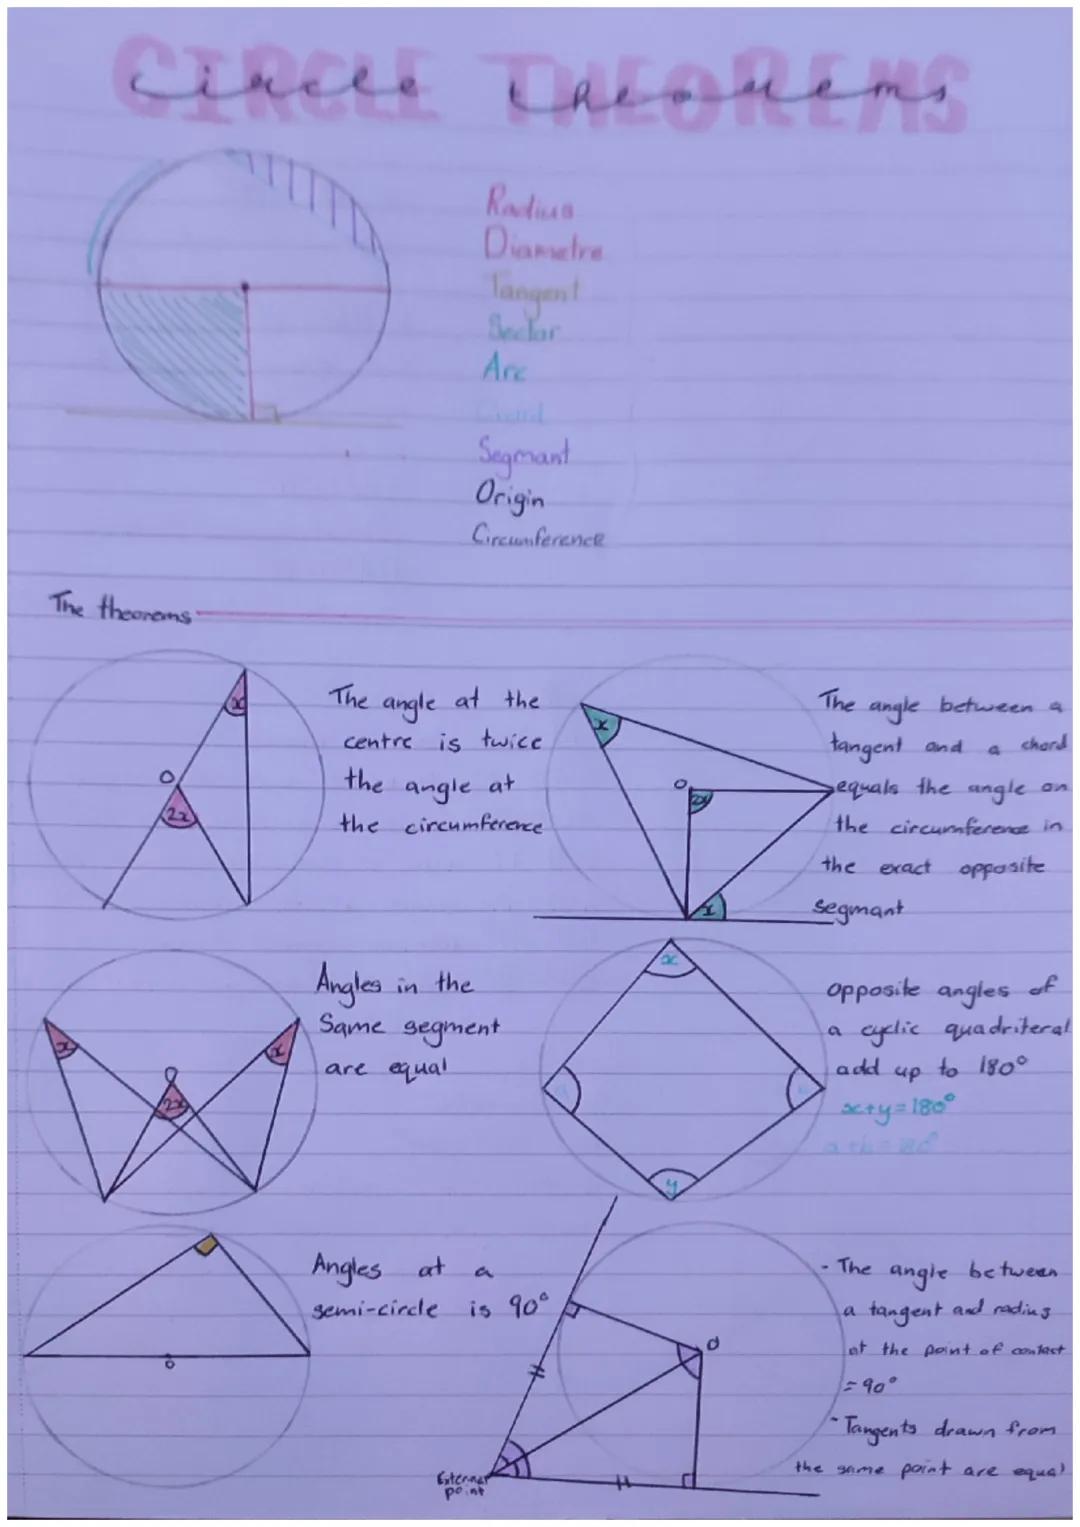 CIRCLE THEOREMS
circle theorems
Radius
Diametre
Tangent
Sector
Arc
Chord
Segmant
Origin
Circumference
The theorems
x
O
2x
The angle at the
centre is twice
the angle at
the circumference
x
O
2x
x
The angle between a
tangent and a chord
equals the angle on
the circumference in
the exact opposite
segmant
x
x
O
2x
Angles in the
Same segment
are equal
x
y
opposite angles of
a cyclic quadriteral
add up to 180°
x+y=180°
O
Angles at a
semi-circle is 90°
O
External
point
- The angle between
a tangent and radius
at the point of contact
= 90°
- Tangents drawn from
the same point are equal